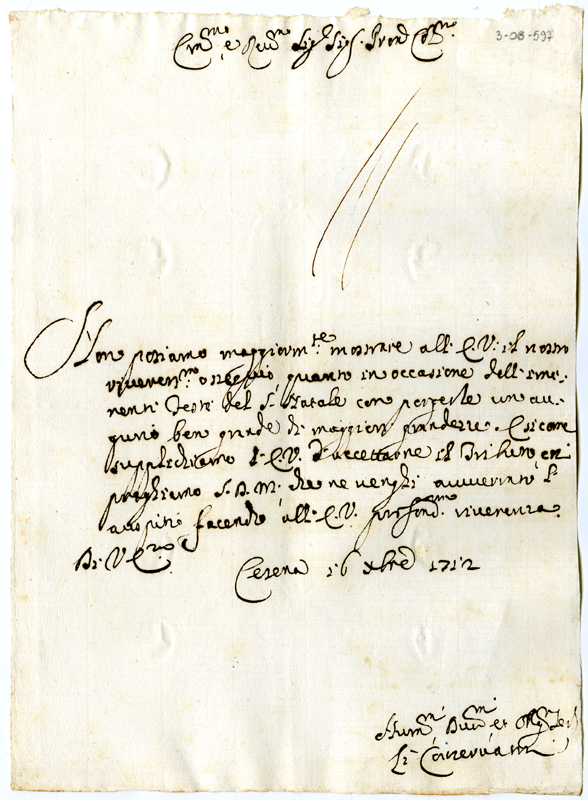 3-08-597
Em.mo e Rev.mo Sig.r Sig.r Pron. Col.mo
Non potiamo maggiorm.te mostrare all' E.V: il nostro
riverent.mo ossequio quanto in occasione dell' emi-
nenti feste del S. Natale con porgerle un au-
gurio ben grande di maggiori grandezze. E sicome
supplichiamo l' E.V. d'accettarne il Tributo, così
preghiamo S. D. M. che ne venghi avverinto l'
auspitio facendo all' E.V. profond.ma riverenza.
Di V. E.
Cesena 16 Xbre 1712
Hum.mi Dev.mi et Obl.mi
Li Conservatori